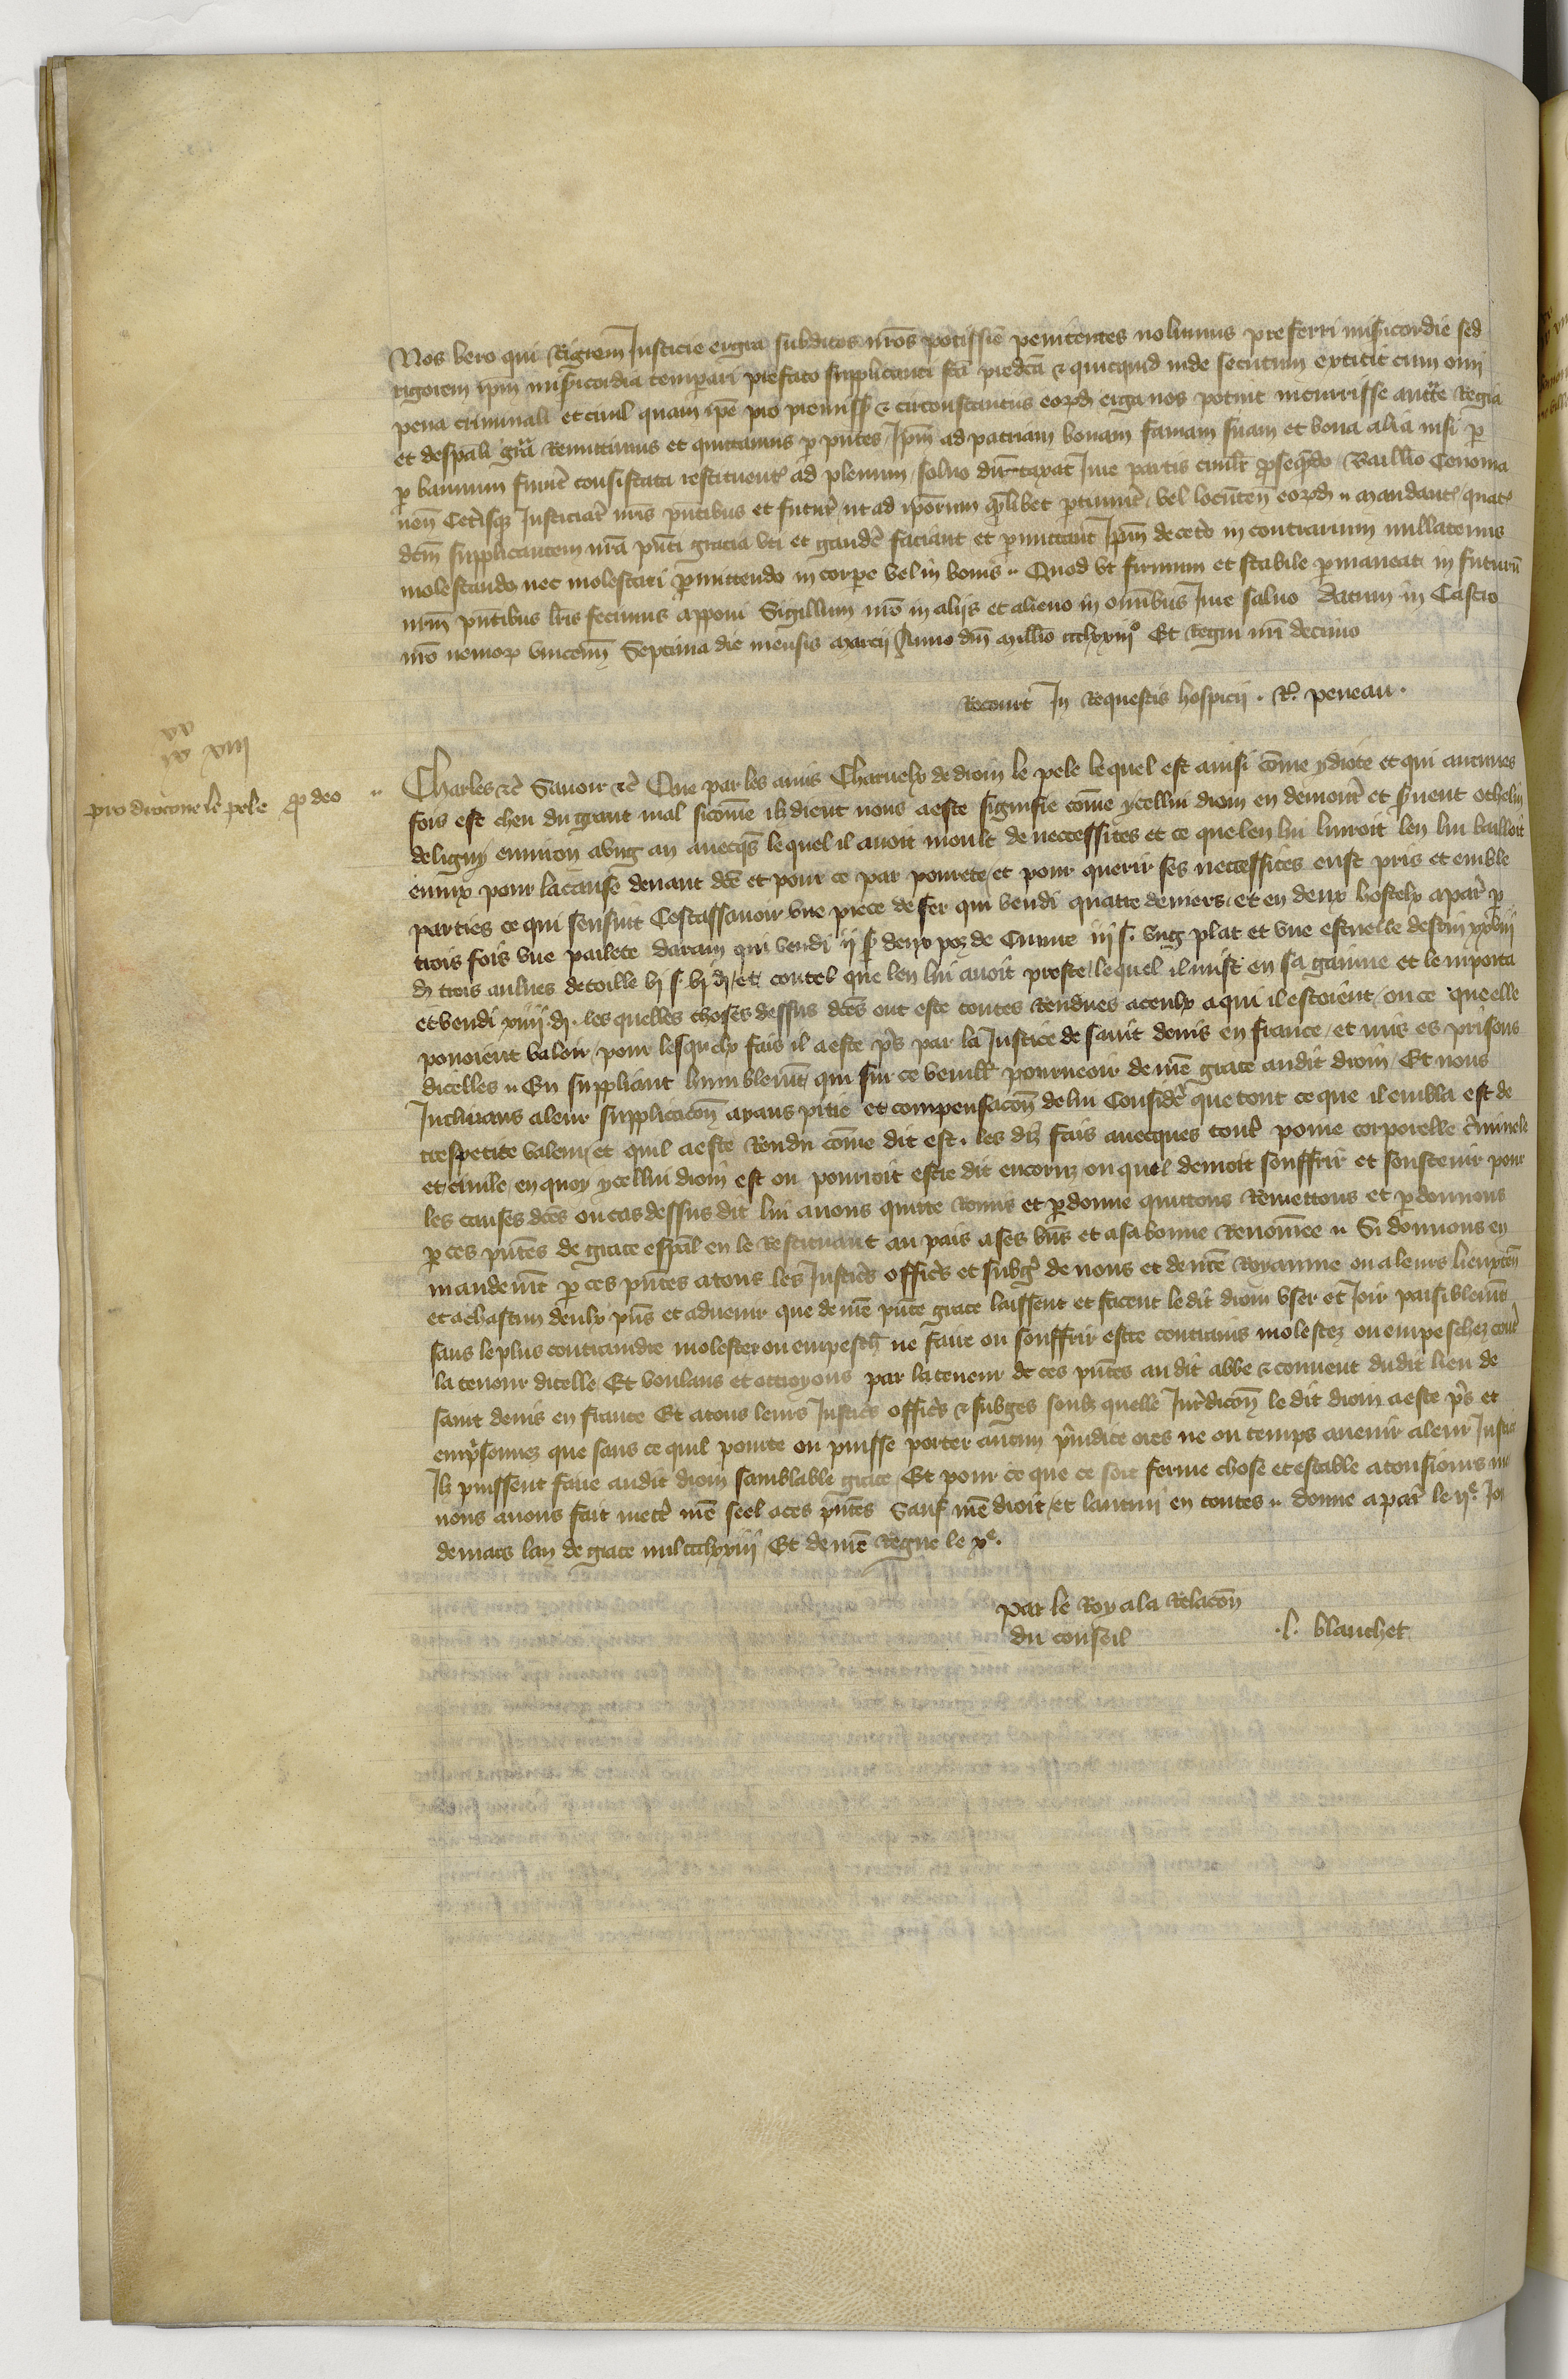 Nos vero qui Rigorem Justicie erga subditos nros potissie penitentes nolumus preferri misericordie sed
rigorem ipm misericordia temperari prefato supplicanti fca predca & quicquid inde secutum extitit cum omi
pena criminali et civil quam ipe pro premiss & circonstanciis eorumd erga nos potuit incurrisse auctte Regia
et despali gra Remittimus et quittamus p pntes Ipm ad patriam bonam famam suam et bona alia nisi p
p bannum fuerit confiscata restituentes ad plenum salvo dumtaxat Jure partis civilr prosequendo Baillivo Cenoma
nen Ceterisque Justiciar nris pntibus et futur ut ad ipsorum quelibet ptinuerit vel locuten eorumd mandantes quat
dcm supplicantem nra pnti gracia uti et gaudere faciant et pmittant Ipm decetero in contrarium nullatenus
molestando nec molestari pmittendo in corpe vel in bonis Quod ut firmum et stabile pmaneat in futurum
nrm pntibus lris fecimus apponi Sigillum nro in aliis et alieno in omnibus Jure salvo Datum in Castro
nro nemor vincenn Septima die mensis marcii Anno dm millio ccclxxiiio Et Regni nri decimo
Recourt In Requestis hospicii . R. peneau .
xx
iv xiii
pro diocone le pele pro deo
Charles etc Savoir etc Que par les amis Charnelx de dioin le pele lequel est ainsi come ydiote et qui aucunes
fois est cheu du grant mal sicome ilz dient nous a este signifie come ycellui dioin en demourt et svent othelin
deligny environ a ung an avecqs lequel il avoit moult de neccessites et ce que len lui livroit len lui bailloit
ennux pour la cause devant dce et pour ce par povrete et pour querir ses neccessites eust pris et emble
parties ce qui sensuit Cestassavoir une piece de fer qui vendi quatre deniers et en deux hostelx a par p
trois fois une pailete darain qui vendi ii s deux poz de Cuivre iii s. ung plat et une escuelle destain xxviii
d trois aulnes de toille vi s vi d et coutel que len lui avoit preste lequel il mist en sa gainne et lemporta
et vendi xiiii d. les quelles choses dessus dces ont este toutes Rendues a ceulx a qui il estoient ou ce quelle
povoient valoir pour lesquelx fais il a este ps par la Justice de saint denis en france et mis es prisons
dicelles En suppliant humblement que sur ce veuillons pourveoir de nre grace audit dioin Et nous
Inclinans a leur supplicacon ayans pitie et compensacon de lui Considere que tout ce que il embla est de
trespetite valeur et quil a este Rendu come dit est . les dis fais avecques toute peine corporelle criminele
et civile en quoy ycellui dioin est ou pourroit estre dit encoruz ou quel devroit souffrir et soustenir pour
les causes dces ou cas dessus dit lui avons quitte Remis et pdonne quittons Remettons et pdonnons
p ces pntes de grace espal en le Restituant au pais a ses bns et a sa bonne Renomee Si donnons en
mandemt p ces pntes a tous les Justiciers officiers et subgiez de nous et de nre Royaume ou a leurs lieuxten
et a chascun deulx pns et advenir que de nre pnte grace laissent et facent ledit dioin user et Joir paisiblemt
sans le plus contraindre molester ou empescher ne faire ou souffrir estre contrains molestez ou empeschez contre
la teneur dicelle Et voulans et octroyons par la teneur de ces pntes au dit abbe & couvent dudit lieu de
saint denis en france Et a tous leurs Justiciers officiers & subges soubz quelle Juridicon le dit dioin a este ps et
emprisonnez que sans ce quil pourte ou puisse porter aucun prejudice ores ne ou temps avenir a leur Justice
Ilz puissent faire audit dioin samblable grace Et pour ce que ce soit ferme chose et estable a tousiours
nous avons fait mettre nre seel a ces pntes Sauf nre droit et lautrui en toutes donne a par le iie Jo
de mars lan de grace mil ccclxxiii Et de nre Regne le xe.
par le Roy a la Relacon
du conseil .l. blanchet